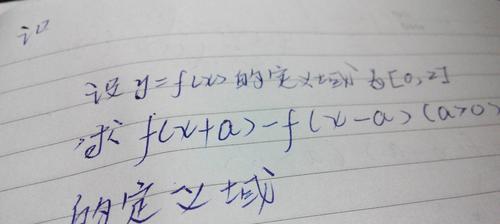 记
设y=f(x)的定义域为[0,2]
求f(x+a)-f(x-a)(a>0)
的定义域